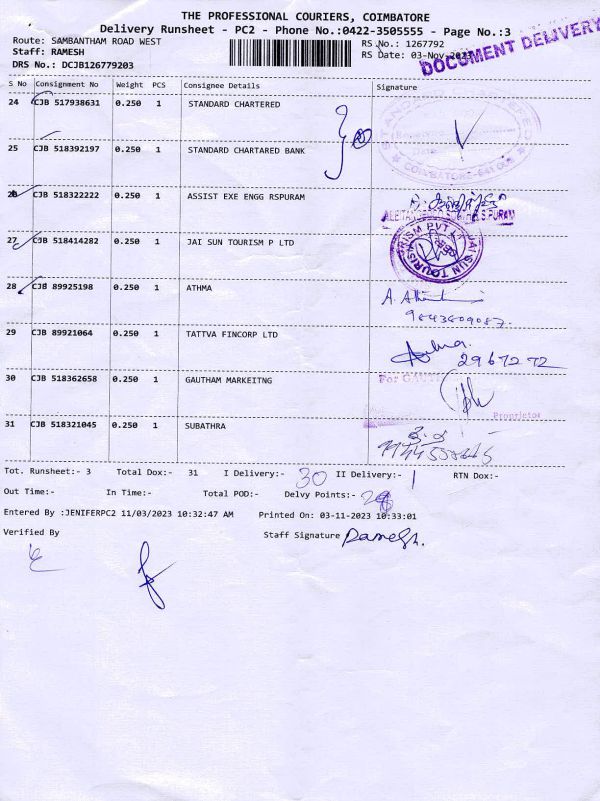 THE PROFESSIONAL COURIERS, COIMBATORE
Delivery Runsheet - PC2 - Phone No.:0422-3505555 - Page No.:3
DOCUMENT DELIVERY
Route: SAMBANTHAM ROAD WEST
RS No.: 1267792
Staff: RAMESH
RS Date: 03-Nov-2023
DRS No.: DCJB126779203
S No Consignment No Weight PCS Consignee Details Signature
24 CJB 517938631 0.250 1 STANDARD CHARTERED
25 CJB 518392197 0.250 1 STANDARD CHARTARED BANK
COIMBATORE-641
26 CJB 518322222 0.250 1 ASSIST EXE ENGG RSPURAM
27 CJB 518414282 0.250 1 JAI SUN TOURISM P LTD
JAI SUN TOURISM PVT LTD
28 CJB 89925198 0.250 1 ATHMA
29 CJB 89921064 0.250 1 TATTVA FINCORP LTD
2967272
30 CJB 518362658 0.250 1 GAUTHAM MARKEITNG
For
Proprietor
31 CJB 518321045 0.250 1 SUBATHRA
Tot. Runsheet:- 3 Total Dox:- 31 I Delivery:- 30 II Delivery:- 1 RTN Dox:-
Out Time:- In Time:- Total POD:- Delvy Points:-
Entered By :JENIFERPC2 11/03/2023 10:32:47 AM Printed On: 03-11-2023 10:33:01
Verified By Staff Signature Ramesh.